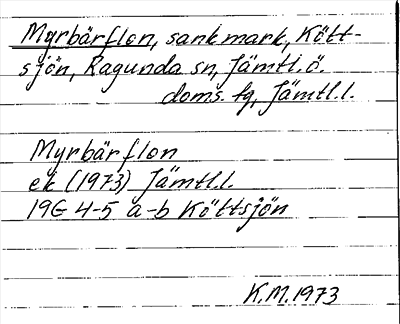 Myrbärflon, sank mark, Kött-
sjön, Ragunda sn, Jämtl. ö.
doms. fg, Jämtl. l.
Myrbärflon
ek (1973) Jämtl. l.
19G 4-5 a-b Köttsjön
K.M. 1973